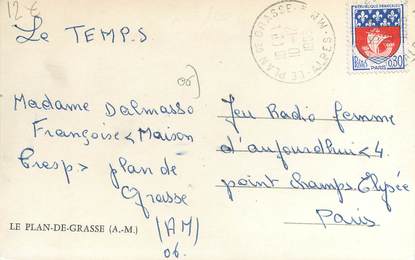 12 €
Le TEMPS
06)
Madame Dalmasso
Françoise < Maison
Cresp > plan de
Grasse
(AM)
06.
LE PLAN-DE-GRASSE (A.-M.)
LE PLAN DE GRASSE
REPUBLIQUE FRANÇAISE
POSTES
PARIS
0,30
Jeu Radio femme
d'aujourdhui < 4
point champs. Elysée
Paris